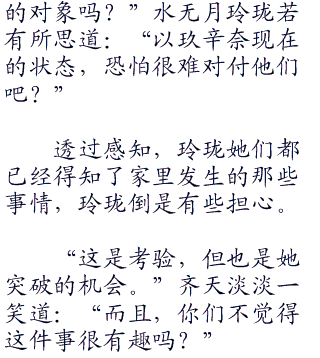 的对象吗？”水无月玲珑若
有所思道：“以玖辛奈现在
的状态，恐怕很难对付他们
吧？”
透过感知，玲珑她们都
已经得知了家里发生的那些
事情，玲珑倒是有些担心。
“这是考验，但也是她
突破的机会。”齐天淡淡一
笑道：“而且，你们不觉得
这件事很有趣吗？”